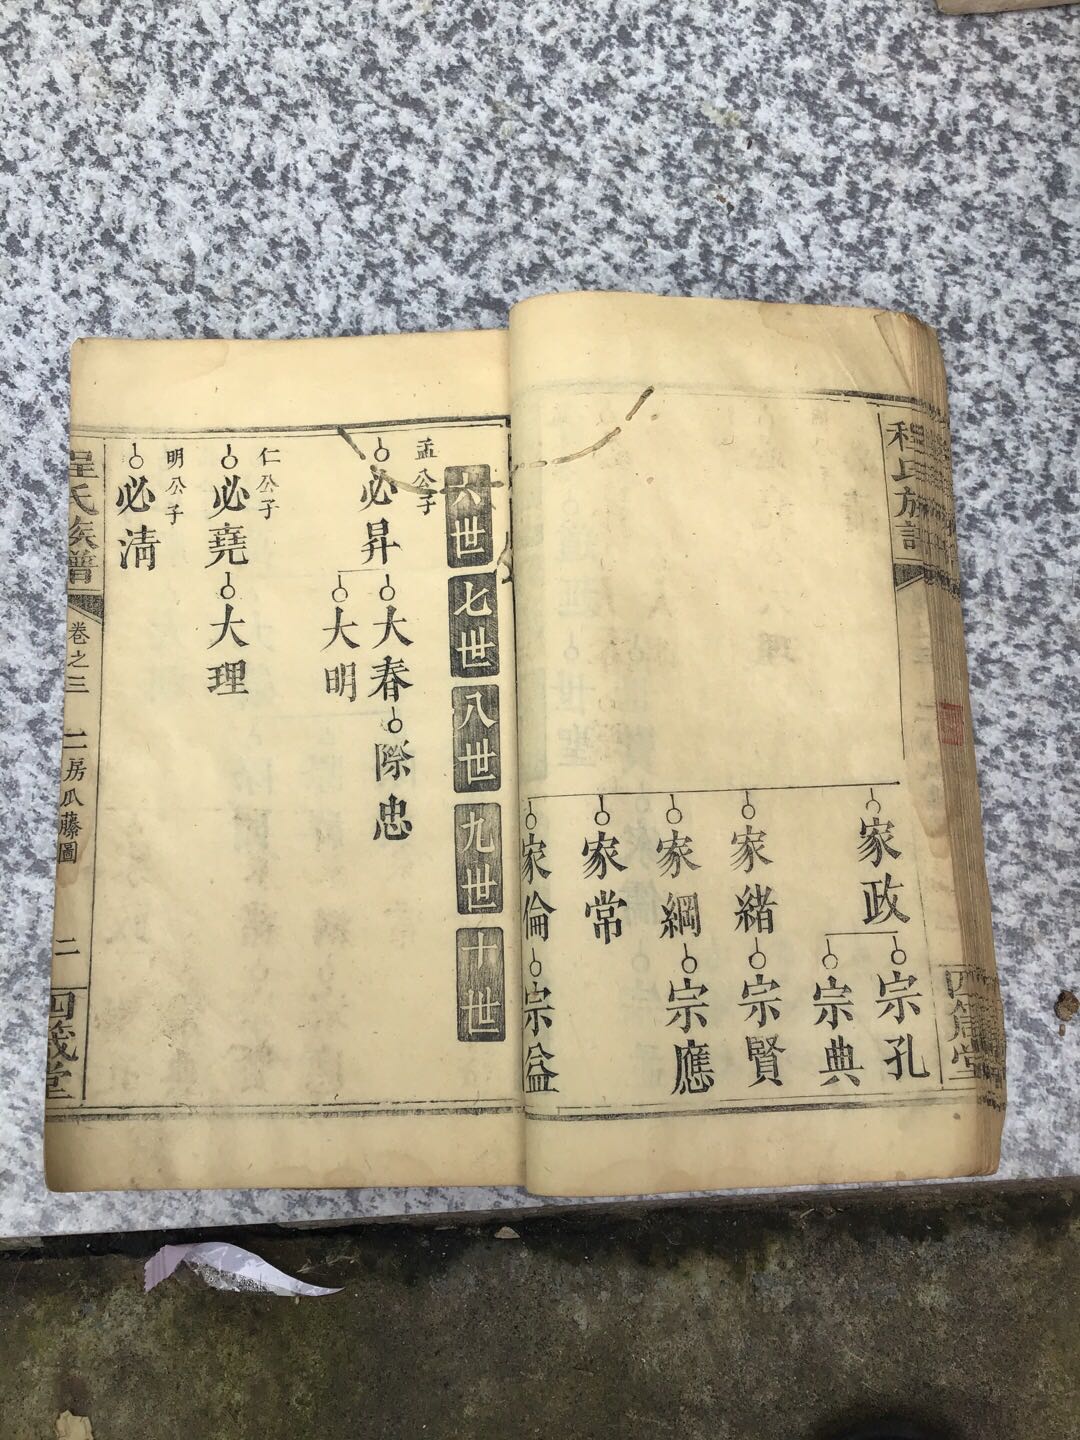 程氏族譜
家政
宗孔
宗典
家緒
宗賢
家綱
宗應
家常
家倫
宗益
六世
七世
八世
九世
十世
孟公子
必昇
大春
際忠
大明
仁公子
必堯
大理
明公子
必清
程氏族譜
卷之三
二房瓜藤圖
二
四箴堂